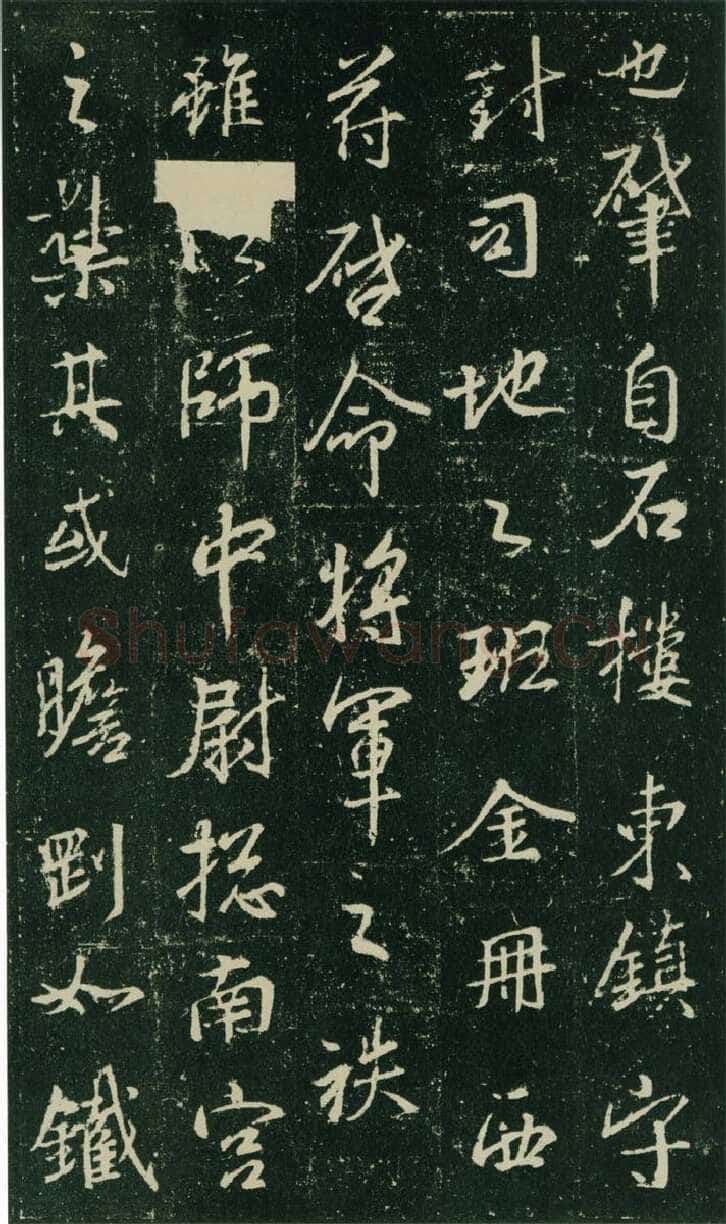 也肇自石樓東鎮守
封司地之班金冊西
符啓命將軍之袟
雖以師中尉揔南宮
之葉其或膽剛如鐵
Shufawang.CN